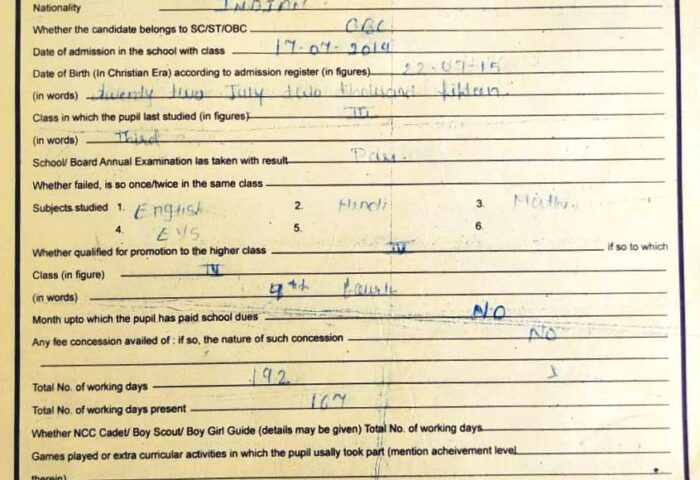 Nationality INDIAN
Whether the candidate belongs to SC/ST/OBC OBC
Date of admission in the school with class 17-07-2019
Date of Birth (In Christian Era) according to admission register (in figures) 22-07-15
(in words) twenty two July two thousand fifteen.
Class in which the pupil last studied (in figures) III
(in words) Third
School/ Board Annual Examination las taken with result Pass.
Whether failed, is so once/twice in the same class
Subjects studied 1. English 2. Hindi 3. Math.
4. EVS 5. 6.
Whether qualified for promotion to the higher class IV if so to which
Class (in figure) IV
(in words) 4th Fourth
Month upto which the pupil has paid school dues NO
Any fee concession availed of : if so, the nature of such concession NO
Total No. of working days 192
Total No. of working days present 167
Whether NCC Cadet/ Boy Scout/ Boy Girl Guide (details may be given) Total No. of working days
Games played or extra curricular activities in which the pupil usally took part (mention acheivement level
therein)